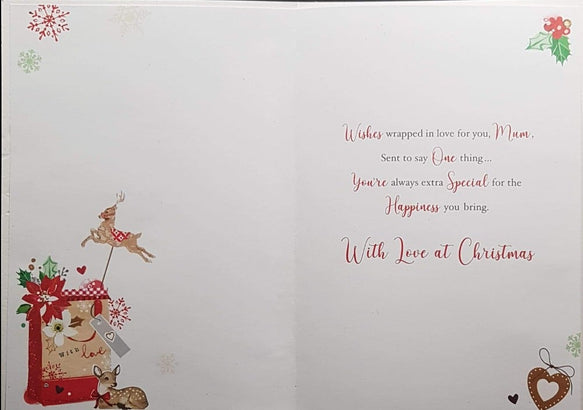 with love
Wishes wrapped in love for you, Mum,
Sent to say One thing...
You're always extra Special for the
Happiness you bring.
With Love at Christmas